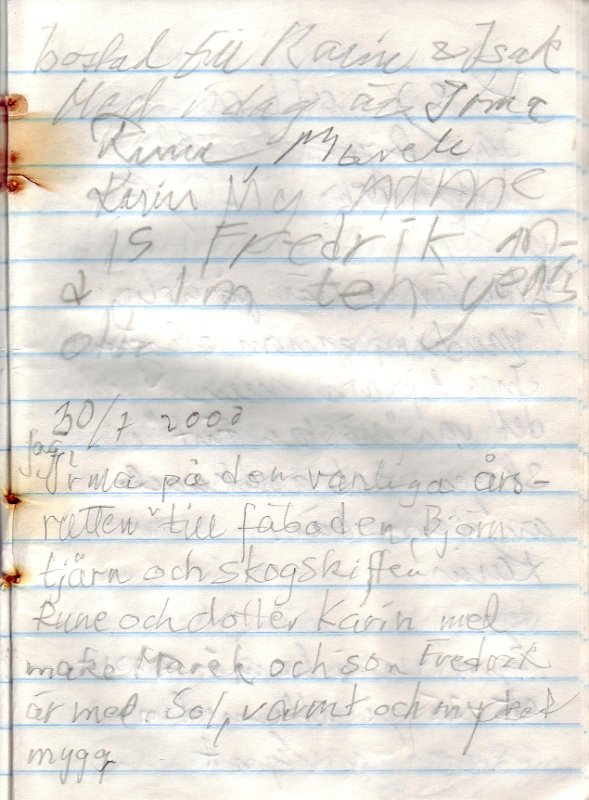 bostad till Karin & Isak
Med idag är Irma
Rune Marek
Karin My NAME
IS FredriK AN-
d I'm ten years
old
30/7 2000
Jag
Irma på den vanliga års-
rutten till fäboden, Björn
tjärn och skogskiften
Rune och dotter Karin med
make Marek och son Fredrik
är med. Sol, varmt och mycket
mygg